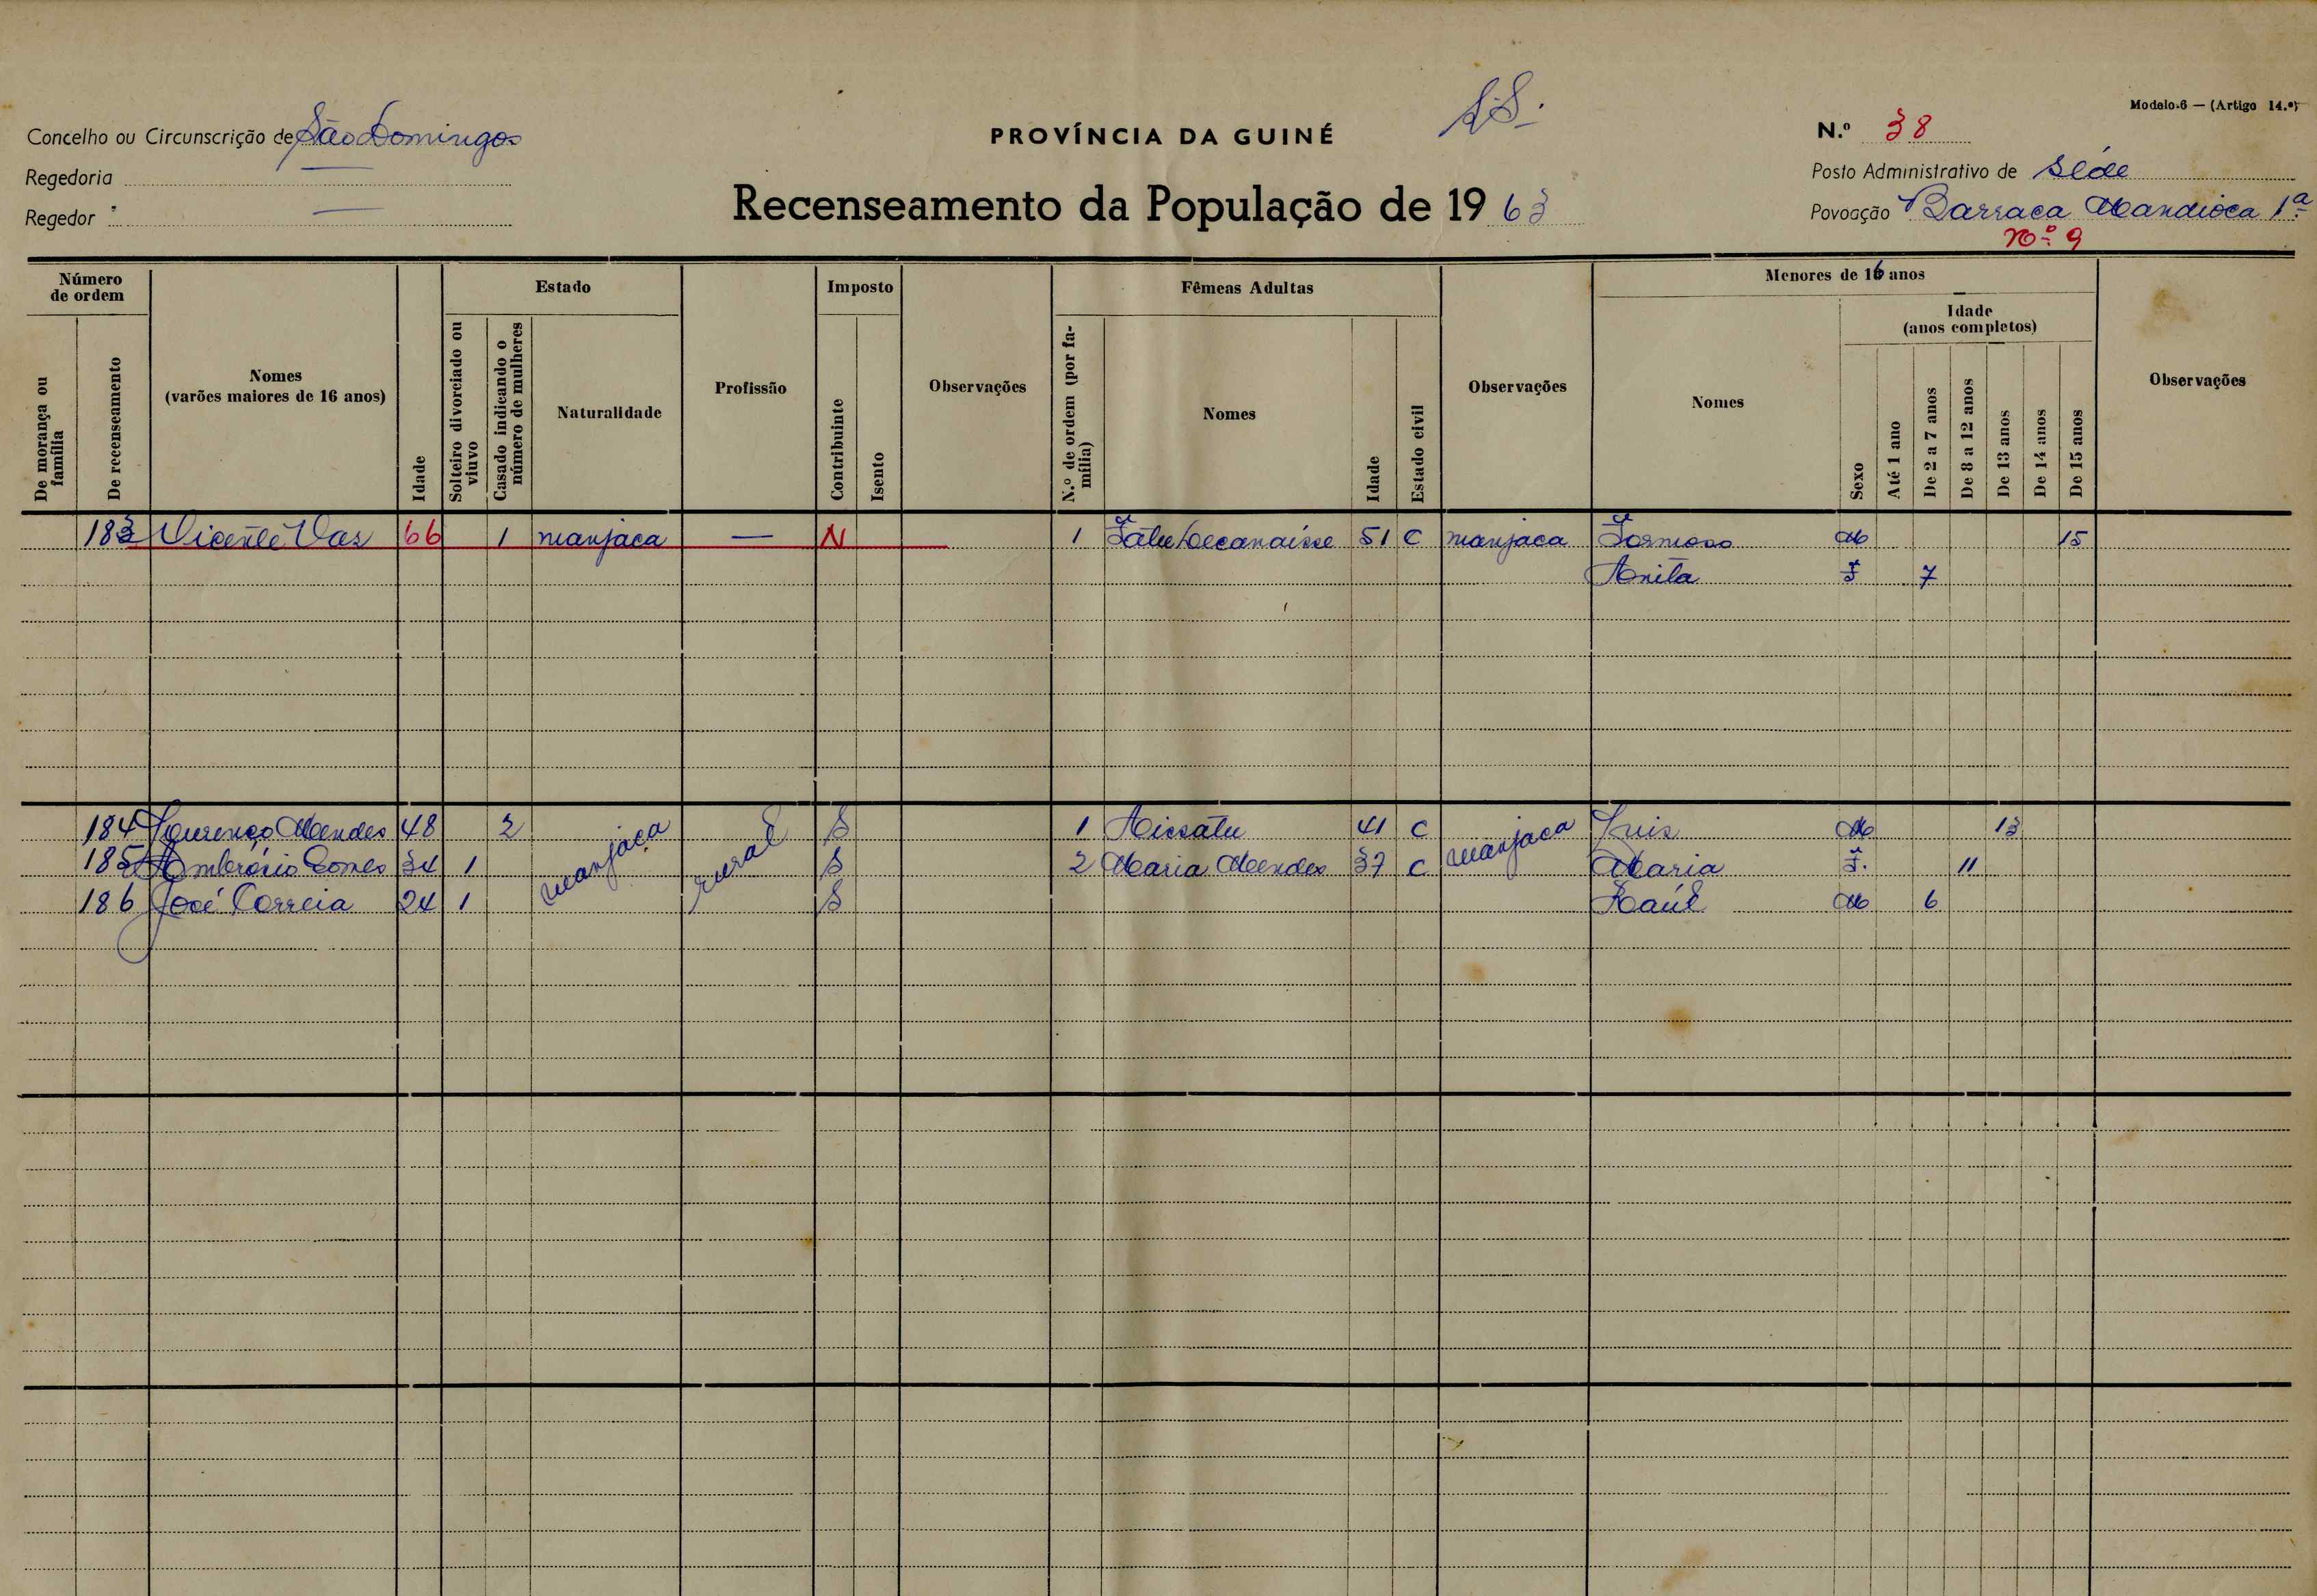 S.S.
Modelo 6 — (Artigo 14.º)
Concelho ou Circunscrição de São Domingos
PROVÍNCIA DA GUINÉ
N.º 38
Regedoria —
Posto Administrativo de Séde
Regedor —
Recenseamento da População de 1963
Povoação Barraca Mandioca 1ª
Nº 9
Número de ordem
De morança ou família
De recenseamento
Nomes
(varões maiores de 16 anos)
Idade
Estado
Solteiro divorciado ou viuvo
Casado indicando o número de mulheres
Naturalidade
Profissão
Imposto
Contribuinte
Isento
Observações
Fêmeas Adultas
N.º de ordem (por família)
Nomes
Idade
Estado civil
Observações
Menores de 16 anos
Nomes
Sexo
Idade
(anos completos)
Até 1 ano
De 2 a 7 anos
De 8 a 12 anos
De 13 anos
De 14 anos
De 15 anos
Observações
183 Vicente Vaz 66 1 manjaca — N 1 Fatu 51 C manjaca Formoso M 15
Anita F 7
184 Lourenço Mendes 48 2 manjaca rural S 1 Aissatu 41 C manjaca Luis M 13
185 Ambrósio Gomes 34 1 S 2 Maria Mendes 37 C Maria F. 11
186 José Correia 24 1 S Raúl M 6